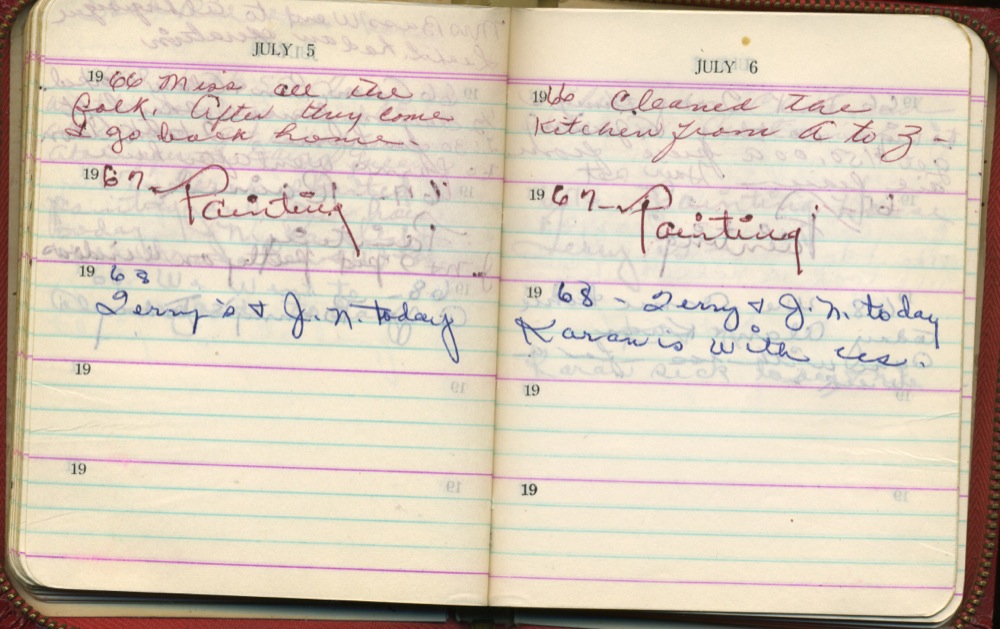 JULY 5
1966 Miss all the
folk. After they come
I go back home.
1967 - Painting
1968
Terry's & J. N. today
19
19
JULY 6
1966 Cleaned the
Kitchen from A to Z -
1967 - Painting
1968 - Terry & J. N. today
Karan is with us.
19
19